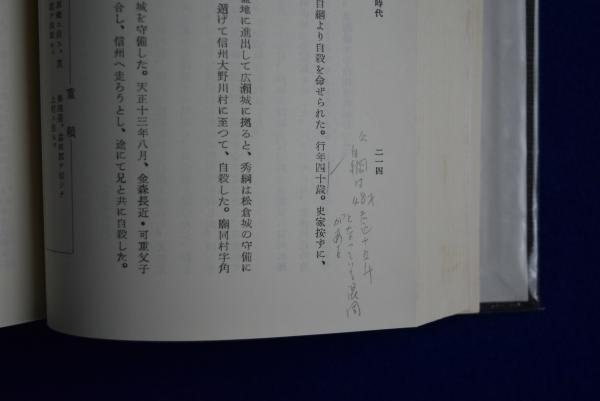 時代
二一四
自綱より自殺を命ぜられた。行年四十歳。史家按ずに、
自綱は48才
となっている混同
がある
盆地に進出して広瀬城に拠ると、秀綱は松倉城の守備に
遁げて信州大野川村に至つて、自殺した。廟同村字角
城を守備した。天正十三年八月、金森長近・可重父子
合し、信州へ走ろうとし、途にて兄と共に自殺した。
重頼